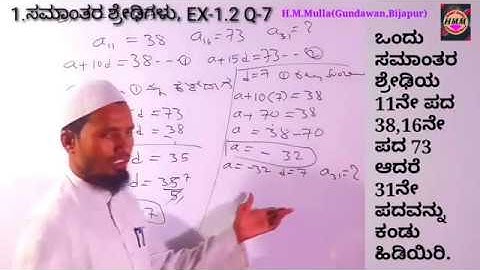 1.ಸಮಾಂತರ ಶ್ರೇಢಿಗಳು, EX-1.2 Q-7
H.M.Mulla(Gundawan,Bijapur)
HMM
a₁₁ = 38 a₁₆ = 73 a₃₁ = ?
a+10d = 38 -- ① a+15d = 73 -- ②
d = 73
d = 38
d = 35
d = 35⁷
5
7
d = 7 ①
a+10(7) = 38
a + 70 = 38
a = 38-70
a = - 32
a = -32 d = 7 a₃₁ = ?
ಒಂದು
ಸಮಾಂತರ
ಶ್ರೇಢಿಯ
11ನೇ ಪದ
38,16ನೇ
ಪದ 73
ಆದರೆ
31ನೇ
ಪದವನ್ನು
ಕಂಡು
ಹಿಡಿಯಿರಿ.